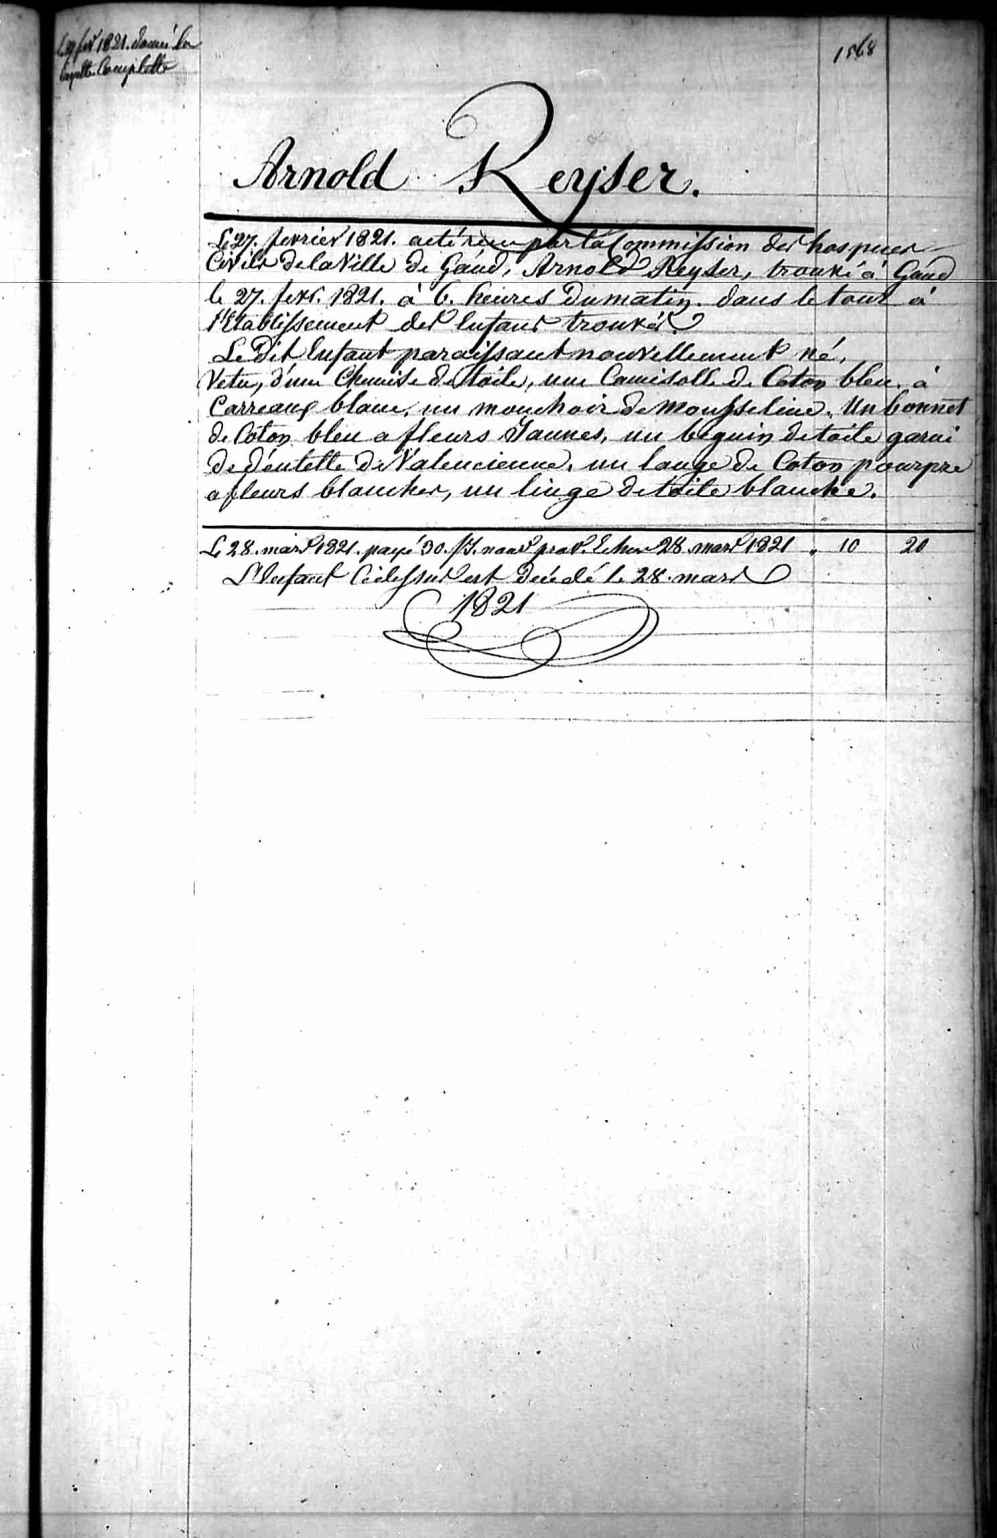 Le 27 fevr 1821. donné la
layette Complette
1568
Arnold Reyser.
Le 27. fevrier 1821. a été recu par la Commission des hospices
Civils de la Ville de Gand, Arnold Reyser, trouvé a Gand
le 27. fevr. 1821. à 6. heures du matin. dans le tour à
l'Etablissement des Enfans trouvés
Le dit Enfant paraissant nouvellement né,
Vetu, d'une Chemise de toile, une Camisolle de Coton bleu. à
Carreaux blanc, un mouchoir de Mousseline. Un bonnet
de Coton bleu a fleurs Jaunes, un beguin de toile garni
de déntelle de Valencienne, un lange de Coton pourpre
a fleurs blanches, un linge de toile blanche.
Le 28. mars 1821. payé 30. Js. nour prov. Echu 28. mars 1821 . 10 20
L'Enfant Cidessus est décédé le 28. mars
1821